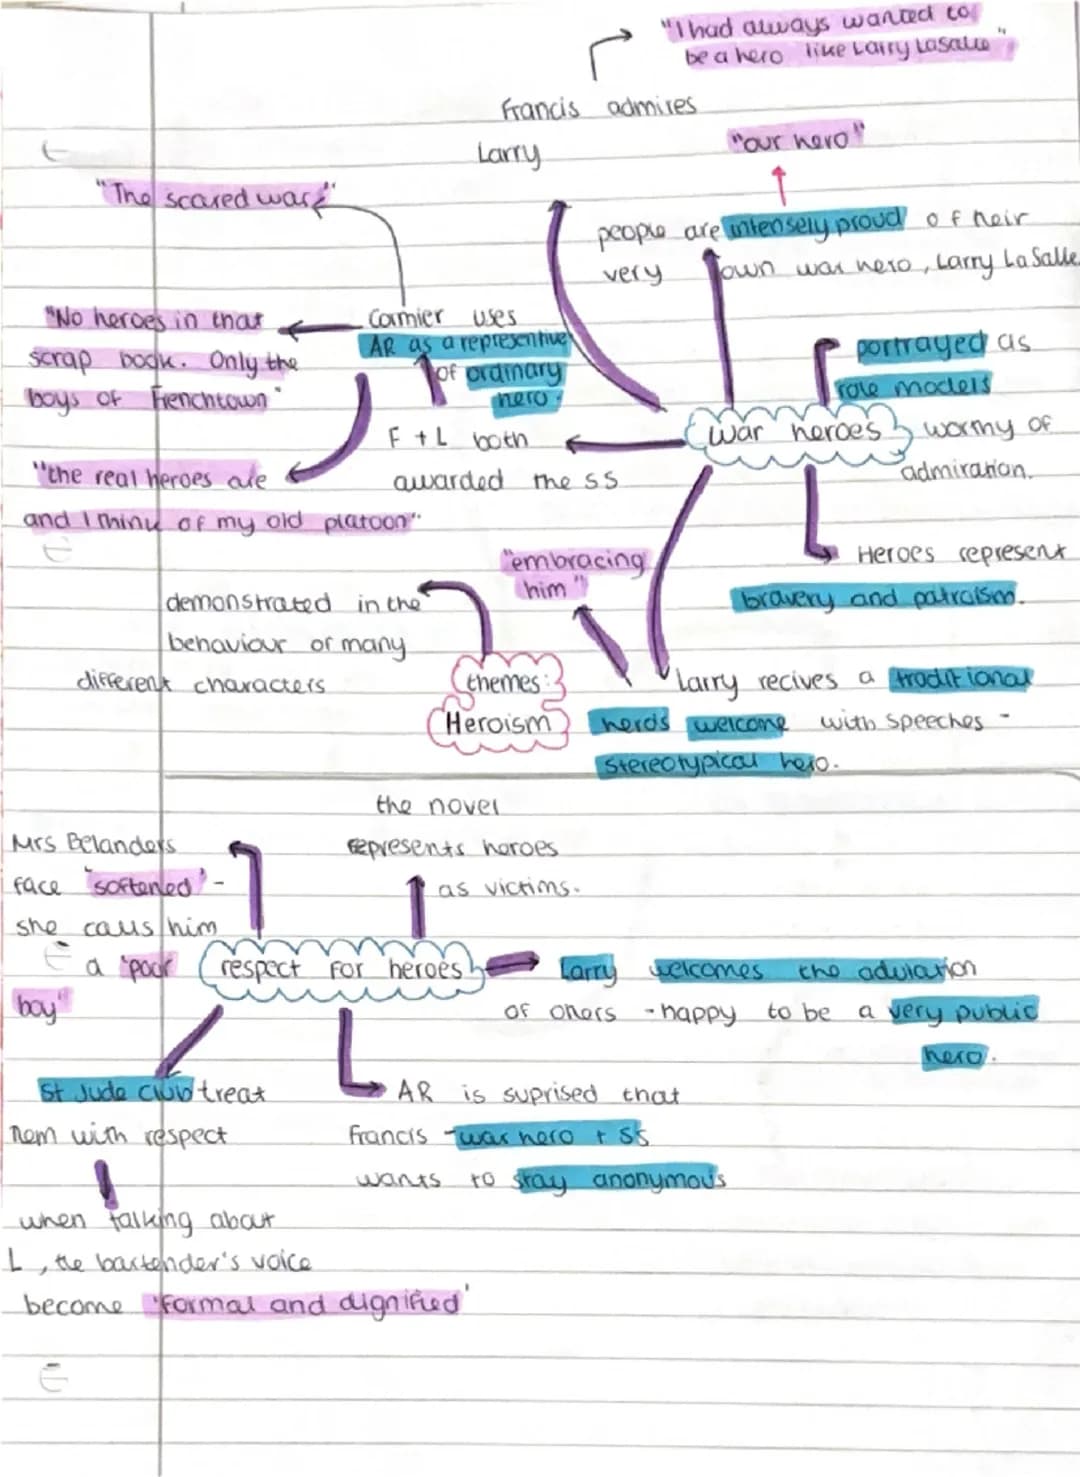 "I had always wanted to
be a hero like Larry LaSalle"
Francis admires
Larry
"our hero"
people are intensely proud of their
very own war hero, Larry LaSalle
"The scared war"
Cormier uses
AR as a representive
of ordinary
hero.
"No heroes in that
scrap book. Only the
boys of Frenchtown"
"the real heroes are
and I think of my old platoon"
F + L both
awarded the SS
portrayed as
role models
worthy of
admiration.
war heroes
Heroes represent
bravery and patraism.
"embracing
him"
demonstrated in the
behaviour of many
different characters
themes:
Heroism
Larry recives a traditional
herds welcome with speeches -
stereotypical hero.
the novel
represents heroes
as victims.
Mrs Belanders
face 'softened' -
she calls him
a 'poor
boy"
respect for heroes
Larry welcomes the adulation
of others - happy to be a very public
hero.
St Jude Club treat
them with respect
AR is suprised that
Francis - war hero + SS
wants to stay anonymous
when talking about
L, the bartender's voice
become 'formal and dignified'